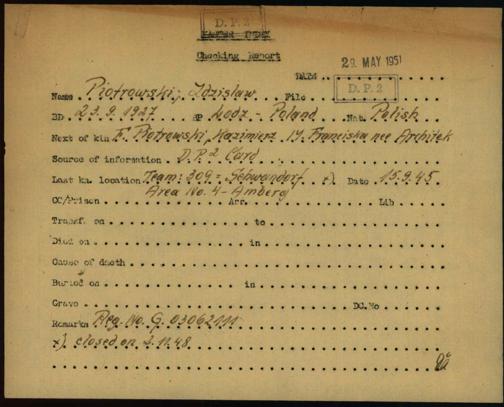 D.P.2
MASTER INDEX
Checking Report
29 MAY 1951
DATE
D.P.2
Name Piotrowski, Zdzisław File
BD 23.9.1927 BP Łodz - Poland Nat. Polish
Next of kin F. Piotrowski, Kazimierz M. Franciska nee Architek
Source of information D.P.2 Card
Last kn. location Team: 309 = Schwandorf x) Date 15.9.45
Area No. 4 - Amberg
CC/Prison Arr. Lib
Transf. on to
Died on in
Cause of death
Buried on in
Grave DC.No
Remarks Reg. No. G. 03062111
x) closed on 2.11.48